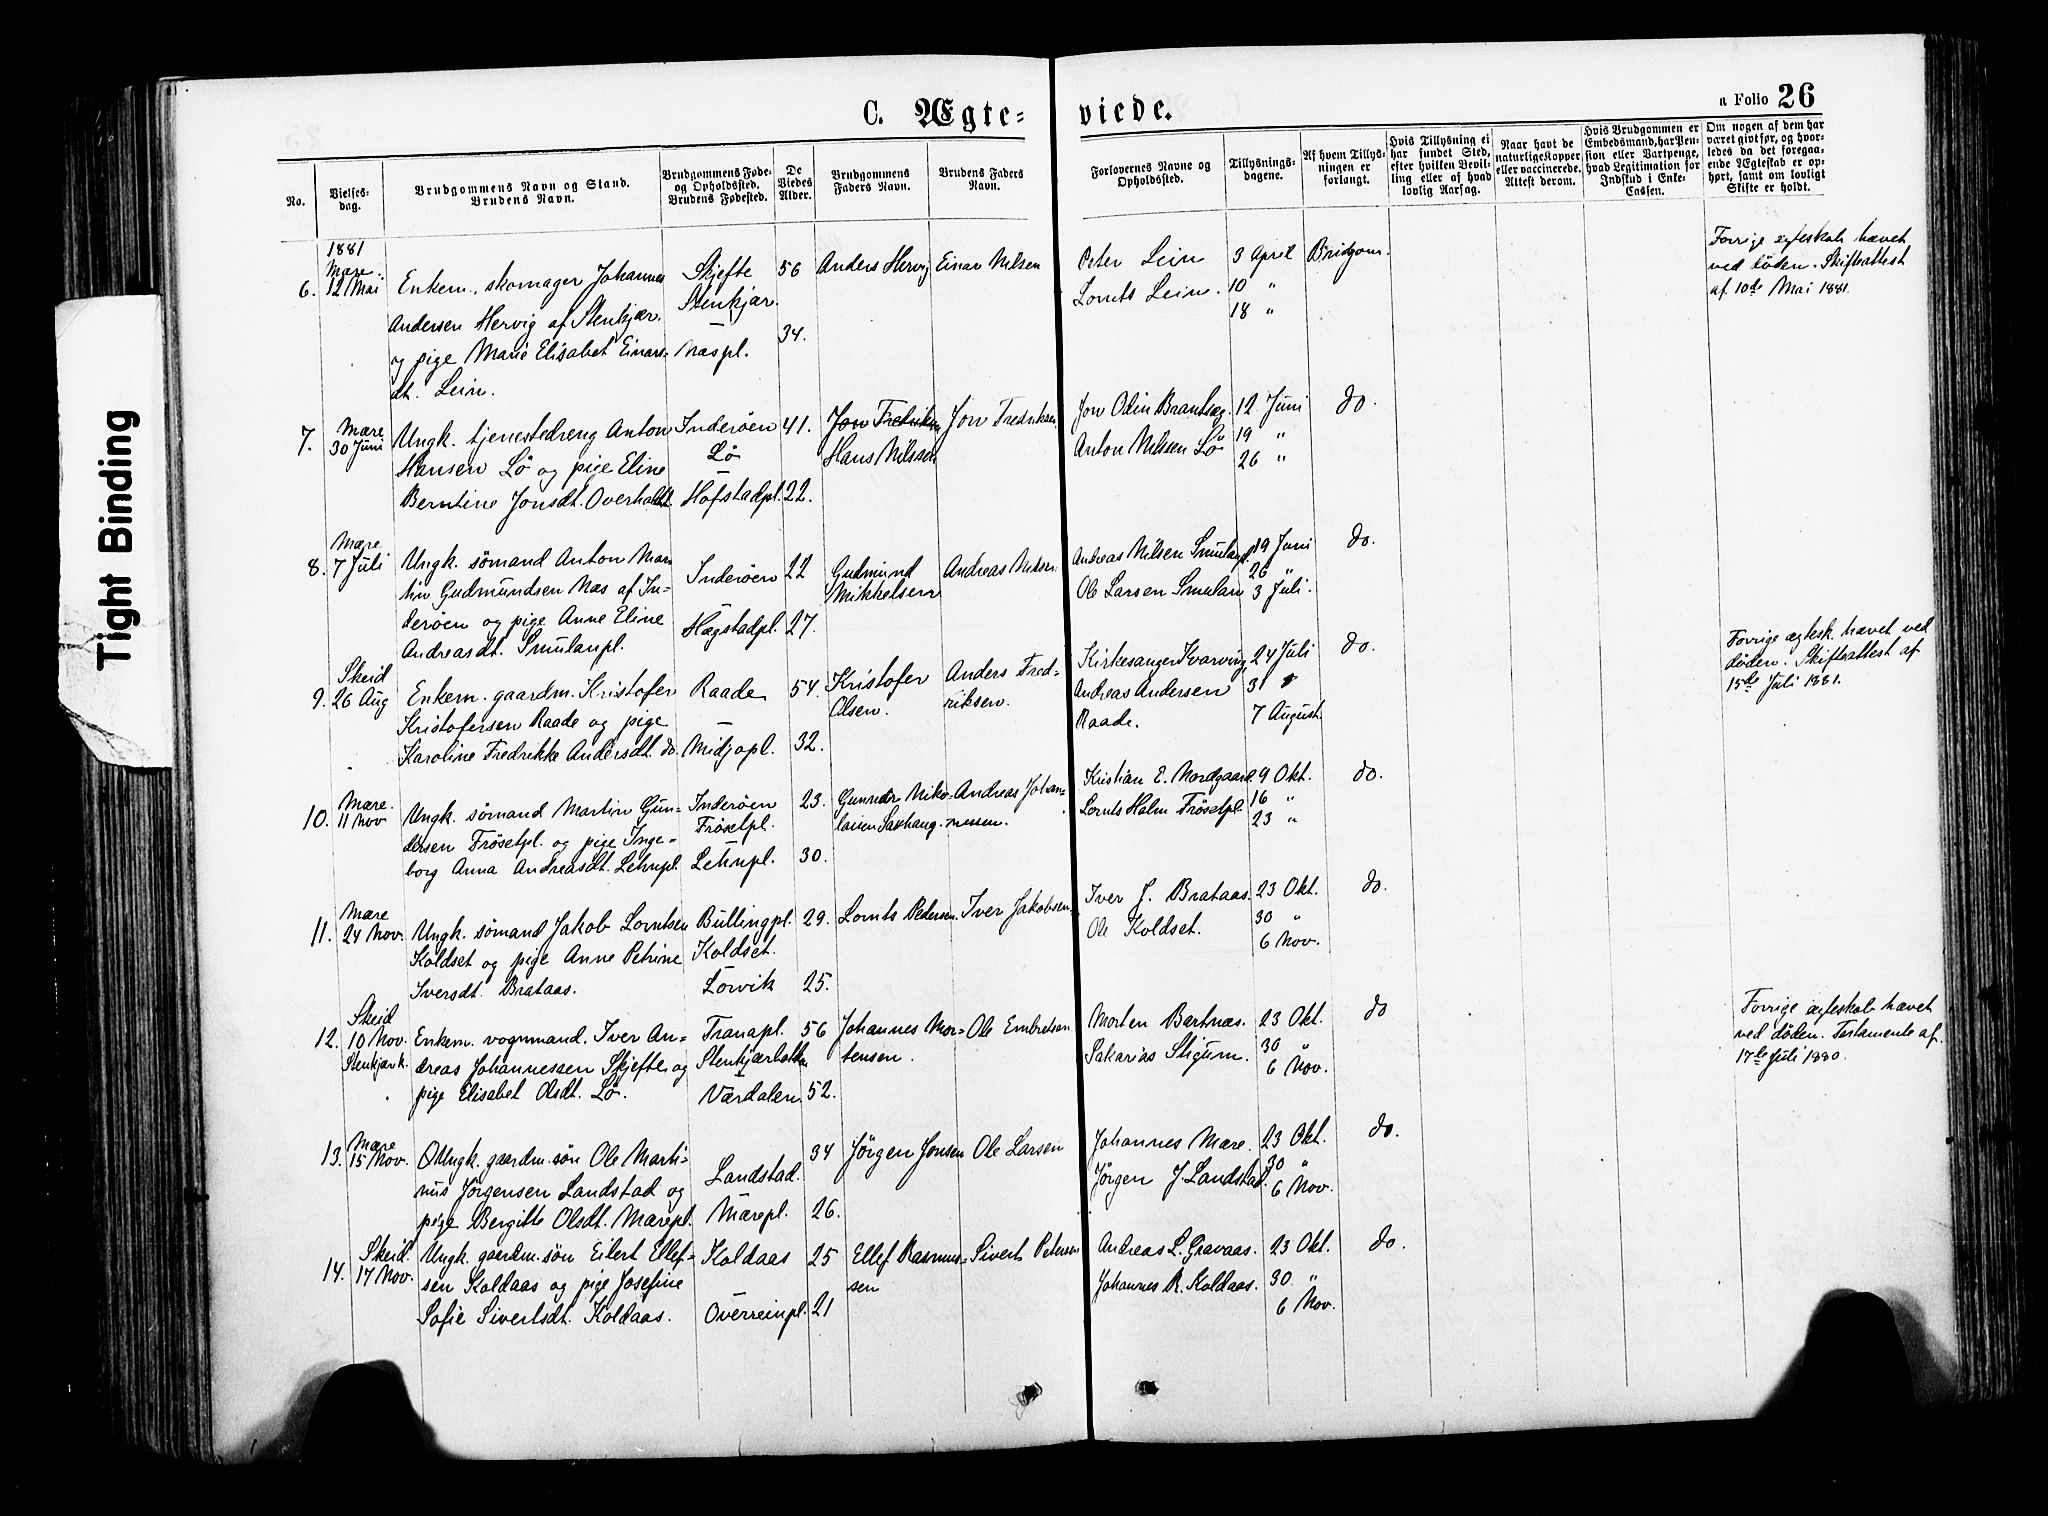 Tight Binding
C. Ægte-
viede.
a Folio 26
No.
Vielses-
dag.
Brudgommens Navn og Stand.
Brudens Navn.
Brudgommens Føde-
og Opholdssted.
Brudens Fødested.
De
Viedes
Alder.
Brudgommens
Faders Navn.
Brudens Faders
Navn.
Forlovernes Navne og
Opholdssted.
Tillysnings-
dagene.
Af hvem Tillys-
ningen er
forlangt.
Hvis Tillysning ei
har fundet Sted,
efter hvilken Bevil-
ling eller af hvad
lovlig Aarsag.
Naar havt de
naturlige Kopper
eller vaccinerede.
Attest derom.
Hvis Brudgommen er
Embedsmand, har Pen-
sion eller Vartpenge,
hvad Legitimation for
Indskud i Enke-
Cassen.
Om nogen af dem har
været gift før, og hvor-
ledes da det foregaa-
ende Ægteskab er op-
hørt, samt om lovligt
Skifte er holdt.
1881
6.
Mære
12 Mai
Enkem. skomager Johannes
Andersen Hervig af Stenkjær
og pige Marie Elisabet Einars-
dt. Lein.
Skjefte
Stenkjær.
Naspl.
56
34.
Anders Hervig
Einar Nilsen
Peter Lein
Lornts Lein.
3 April
10 "
18 "
Brudgom.
Forrige ægteskab hævet
ved døden. Skifteattest
af 10de Mai 1881.
7.
Mære
30 Juni
Ungk. tjenestedreng Anton
Hansen Lö og pige Eline
Berntine Jonsdt. Overhaldt.
Inderøen
Lö
Hofstadpl.
41.
22.
Jon Fredriksen
Hans Nilssen
Jon Fredriksen
Jon Odin Brantsæg.
Anton Nilssen Lö
12 Juni
19 "
26 "
do.
8.
Mære
7 Juli
Ungk. sömand Anton Mar-
tin Gudmundsen Næs af In-
derøen og pige Anne Eline
Andreasdt. Smulanpl.
Inderöen
Hægstadpl.
22
27.
Gudmund
Mikkelsen
Andreas Nilsen
Andreas Nilsen Smulanpl.
Ole Larsen Smulan
19 Juni
26 "
3 Juli.
do.
9.
Skeid
26 Aug
Enkem. gaardm. Kristofer
Kristofersen Raade og pige
Karoline Fredrikke Andersdt. do.
Raade
Midjopl.
54.
32.
Kristofer
Olsen.
Anders Fred-
riksen.
Kirkesanger Kvarving
Andreas Andersen
Raade.
24 Juli
31 "
7 August.
do.
Forrige ægtesk. hævet ved
döden. Skifteattest af
15de Juli 1881.
10.
Mære.
11 Nov
Ungk. sömand Martin Gun-
dersen Frösetpl. og pige Inge-
borg Anna Andreasdt. Lehnpl.
Inderöen
Frösetpl.
Lehnpl.
23.
30.
Gunder Niko-
laisen Saxhaug.
Andreas Johan-
nesen.
Kristian E. Nordgaard.
Lornts Holm Frösetpl.
9 Okt.
16 "
23 "
do.
11.
Mære
24 Nov.
Ungk. sömand Jakob Lorntsen
Koldset og pige Anne Petrine
Iversdt. Brataas.
Bullingpl.
Koldset.
Lorvik
29.
25.
Lornts Pedersen.
Iver Jakobsen
Iver J. Brataas.
Ole Koldset.
23 Okt.
30 "
6 Nov.
do.
12.
Skeid
10 Nov.
Stenkjær k.
Enkem. vognmand. Iver An-
dreas Johannessen Skjefte og
pige Elisabet Olsdt. Lö.
Tranapl.
Værdalen
56
52.
Johannes Mor-
tensen.
Ole Embretsen
Morten Bartnæs.
Sakarias Stigum.
23 Okt.
30 "
6 Nov.
do
Forrige ægteskab hævet
ved döden. Testamente af
17de Juli 1880.
13.
Mære
15 Nov.
Ungk. gaardm. sön Ole Marti-
nus Jörgensen Landstad og
pige Bergitte Olsdt. Mærepl.
Landstad.
Mærepl.
34
26.
Jörgen Jonsen
Ole Larsen
Johannes Mære.
Jörgen J. Landstad.
23 Okt.
30 "
6 Nov.
do.
14.
Skeid.
17 Nov.
Ungk. gaardm. sön Eilert Ellef-
sen Koldaas og pige Josefine
Sofie Sivertsdt. Koldaas.
Koldaas
Overreinpl.
25
21
Ellef Rasmus-
sen
Sivert Petersen
Andreas L. Gravaas.
Johannes R. Koldaas.
23 Okt.
30 "
6 Nov.
do.